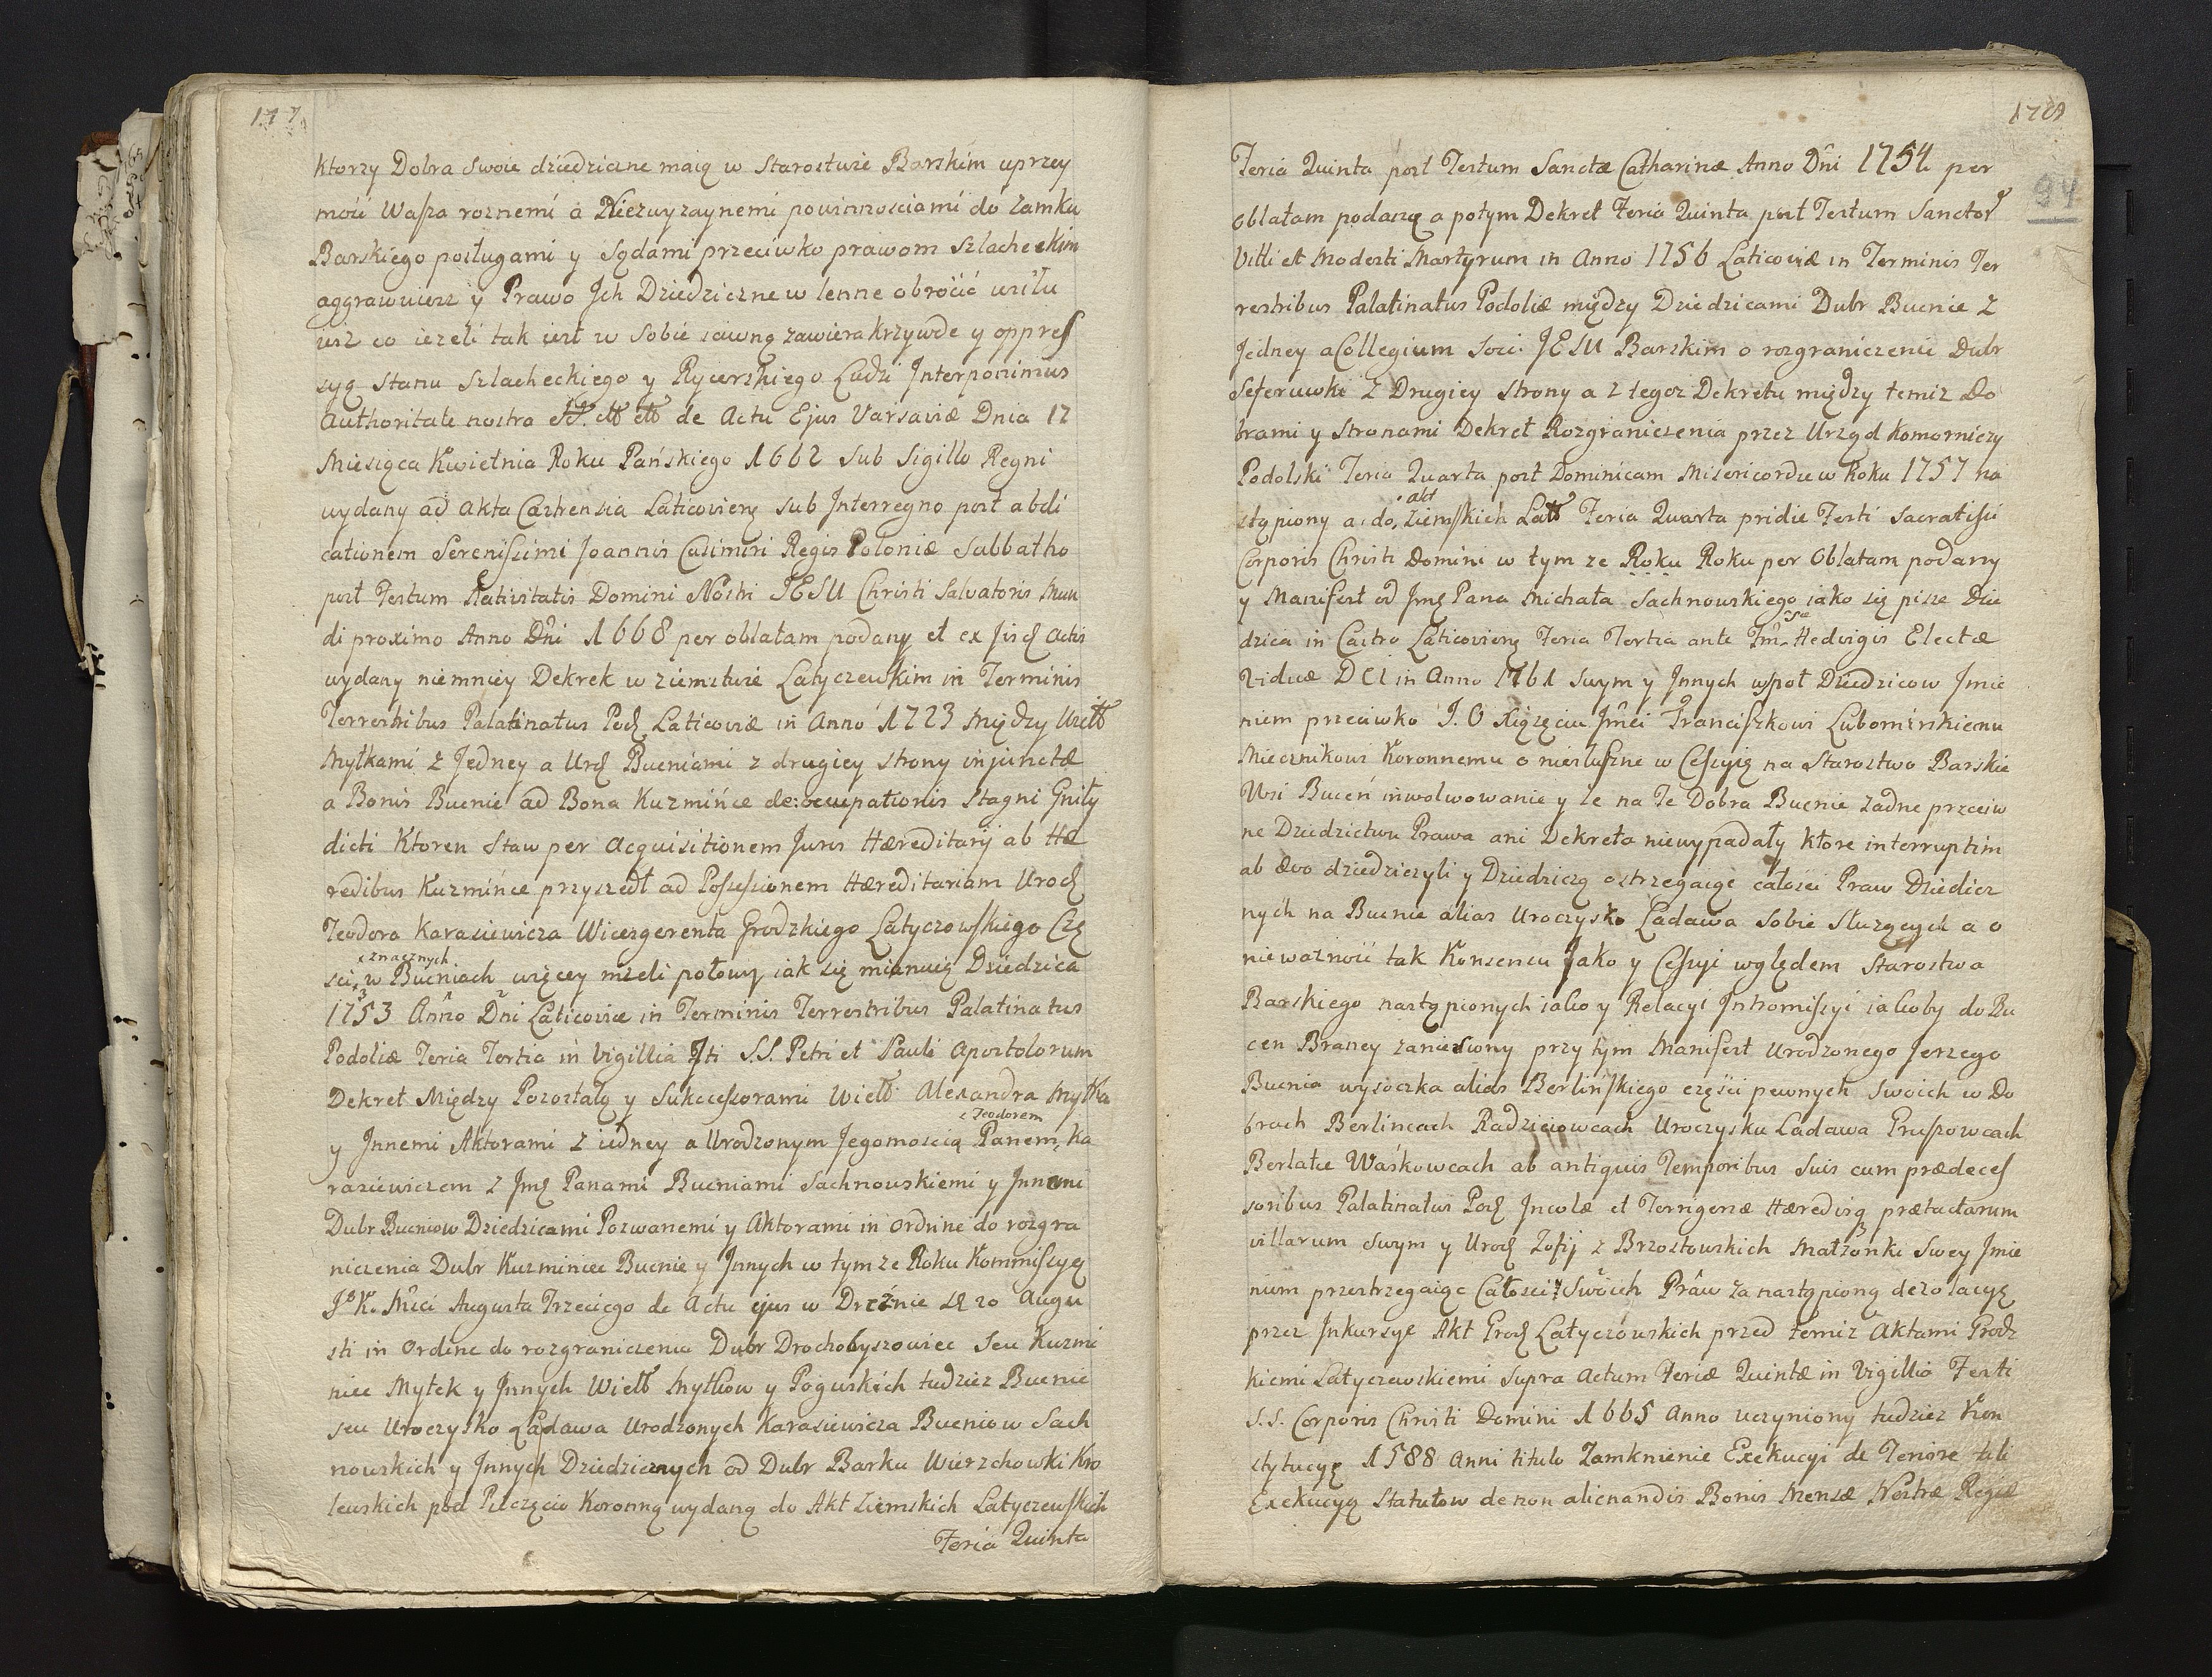 177
ktorzy Dobra swoie dziedziczne maią w Starostwie Barskim uprzey
mość Wasza roznemi a Niezwyzaynemi powinnosciami do Zamku
Barskiego posługami y Sądami przeciwko prawom Szlacheckim
aggrawuiesz y Prawo Jch Dziedziczne w lenne obrócić usiłu
iesz co iezeli tak iest w Sobie iawną zawiera krzywde y oppres
syą Stanu Szlacheckiego y Rycerskiego Ludzi Interponimus
Authoritate nostra de Actu Ejus Varsaviæ Dnia 12
Miesiąca Kwietnia Roku Pańskiego 1662 Sub Sigillo Regni
wydany ad Akta Castrensia Laticovien Sub Interregno post abdi
cationem Serenissimi Joannis Casimiri Regis Poloniæ Sabbatho
post Festum Nativitatis Domini Nostri JESU Christi Salvatoris Mun
di proximo Anno Dni 1668 per oblatam podany et ex Jisd Actis
wydany niemniey Dekrek w ziemstwie Latyczewskim in Terminis
Terrestribus Palatinatus Pod Laticoviæ in Anno 1723 Między Wiel
Mytkami z Jedney a Urod Bucniami z drugiey strony injunctæ
a Bonis Bucnie ad Bona Kuzmińce de: occupationis Stagni Gniły
dicti Ktoren Staw per Acquisitionem Juris Hæreditarij ab Hæ
redibus Kuzmińce przyszedł ad Possessionem Hæreditariam Urod
Teodora Karasiewicza Wicezgerenta Grodzkiego Latyczowskiego Czę
znacznych
sci w Bucniach więcey mzeli połowy iak się mianuią Dziedzica
1753 Anno Dni Laticoviæ in Terminis Terrestribus Palatinatus
Podoliæ Feria Tertia in Vigillia Fsti S.S. Petri et Pauli Apostolorum
Dekret Między Pozostałą y Sukcessorami Wiel Alexandra Mytka
Teodorem
y Jnnemi Aktorami z iedney a Urodzonym Jegomoscią Panem Ka
rasiewiczem z Jmę Panami Bucniami Sachnowskiemi y Jnnemi
Dubr Bucniow Dziedzicami Pozwanemi y Aktorami in Ordine do rozgra
niczenia Dubr Kuzminiec Bucnie y Jnnych w tym ze Roku Kommissyę
J K Mci Augusta Trzeciego de Actu ejus w Dreźnie 20 Augu
sti in Ordine do rozgraniczenia Dubr Drochobyszowiec Seu Kuzmi
niec Mytek y Jnnych Wiel Mytkow y Poguskich tudziez Bucnie
seu Uroczysko Ladawa Urodzonych Karasiewicza Bucniow Sach
nowskich y Jnnych Dziedzicznych od Dubr Barku Wierzchowki Kro
lewskich pod Pieczęcią Koronną wydaną do Akt Ziemskich Latyczewskich
Feria Quinta
94
Feria Quinta post Festum Sanctæ Catharinæ Anno Dni 1754 per
oblatam podaną a potym Dekret Feria Quinta post Festum Sanctor
Vitti et Modesti Martyrum in Anno 1756 Laticoviæ in Terminis Ter
restribus Palatinatus Podoliæ między Dziedzicami Dubr Bucnie z
Jedney a Collegium Soci: JESU Barskim o rozgraniczenie Dubr
Seferuwki z Drugiey Strony a z tegoz Dekretu między temiz Do
brami y Stronami Dekret Rozgraniczenia przez Urząd Komorniczy
Podolski Feria Quarta post Dominicam Misericordiæ w Roku 1757 na
akt
stąpiony a do Ziemskich Lat Feria Quarta pridie Festi Sacratissi
Corporis Christi Domini w tym ze Roku Roku per Oblatam podany
y Manifest od Jmę Pana Michała Sachnowskiego iako się pisze Dzie
dzica in Castro Laticovien Feria Tertia ante Hedvigis Electæ
Viduæ DCI in Anno 1761 Swym y Jnnych wspoł Dziedzicow Jmie
niem przeciwko J. O Xiązęciu Jmci Franciszkowi Lubomirskiemu
Miecznikowi Koronnemu o niesłuszne w Cessyią na Starostwo Barskie
Wsi Buceń inwolwowanie y ze na Te Dobra Bucnie zadne przeciw
ne Dziedzictwu Prawa ani Dekreta niewypadały Ktore interruptim
ab ævo dziedziczyli y Dziedziczą ostrzegaiąc całosci Praw Dziedicz
nych na Bucnie alias Uroczysko Ladawa Sobie Służących a o
niewaznosć tak Konsensu Jako y Cessyi względem Starostwa
Barskiego nastąpionych iako y Relacyi Jntromissyi iakoby do Bu
cen Braney zaniesiony przy tym Manifest Urodzonego Jerzego
Bucnia wysoczka alias Berlińskiego częsci pewnych Swoich w Do
brach Berlincach Radzieiowcach Uroczysku Ladawa Gruszowcach
Berlatce Waśkowcach ab antiquis Temporibus Suis cum prædeces
soribus Palatinatus Pod Jncolæ et Terrigenæ Hæredisq prætactarum
villarum Swym y Urod Zofij z Brzostowskich Małzonki Swey Jmie
niem przestrzegaiąc Całosci Swoich Praw za nastąpioną dezolacyę
przez Jnkursye Akt Grod Latyczowskich przed temiz Aktami Grodz
kiemi Latyczewskiemi Supra Actum Feriæ Quintæ in Vigillia Festi
S.S. Corporis Christi Domini 1665 Anno uczyniony tudziez Kon
stytucyę 1588 Anni titulo Zamknienie Exekucyi de Tenore tali
Exekucyą Statutow de non alienandis Bonis Mensæ Nostræ Regiæ